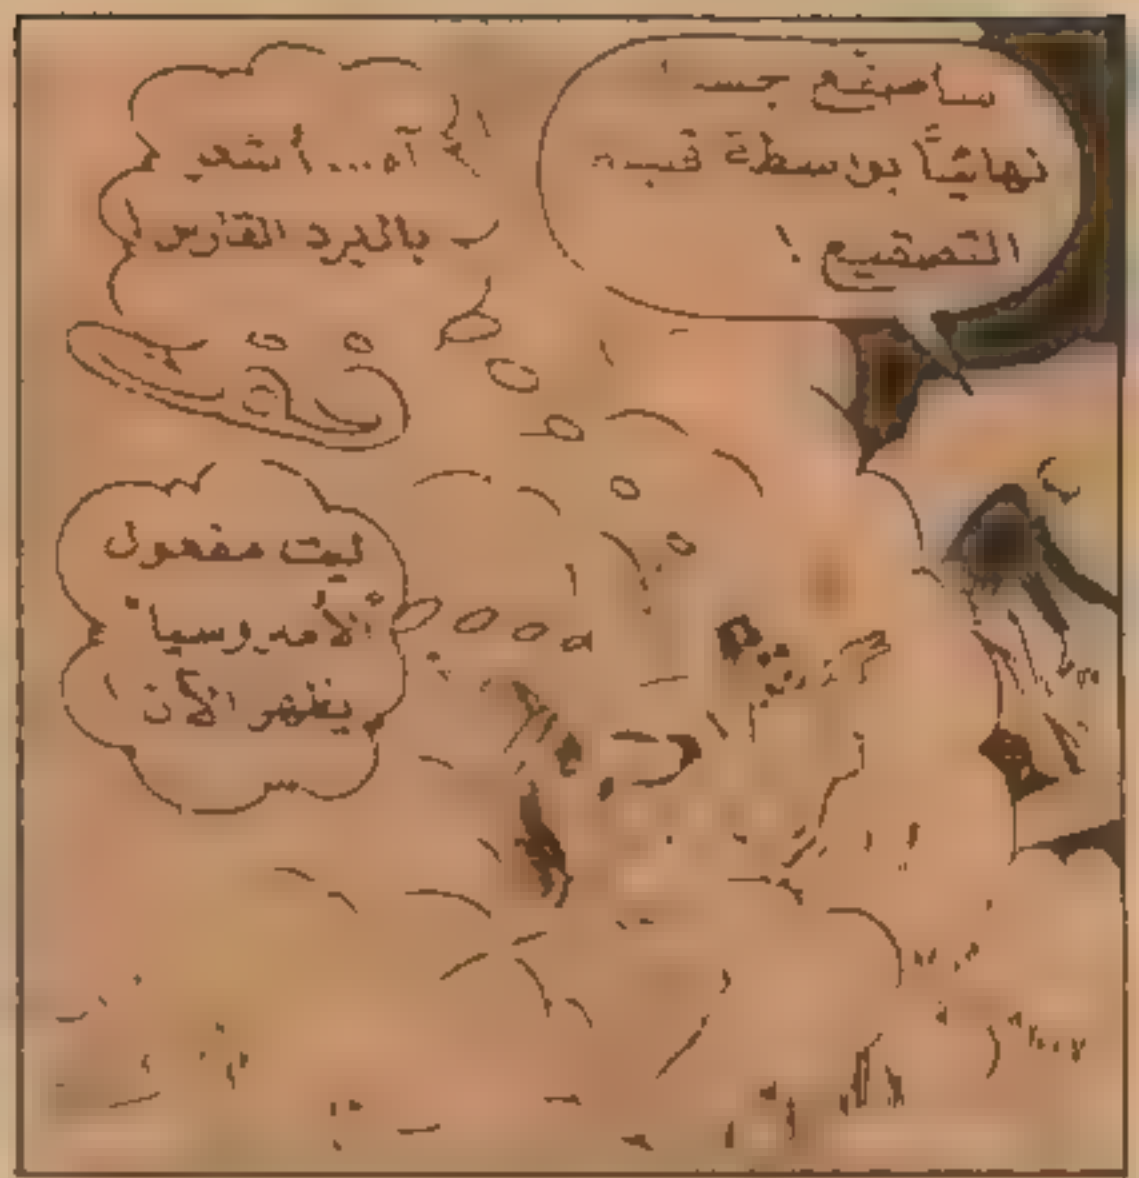 سأصقع جسـ
نهائيًا بوسطة قنبـ
التصقيع !
آه... أشعر
بالبرد القارس !
ليت مفعول
الأمبروسيا
يظهر الآن !